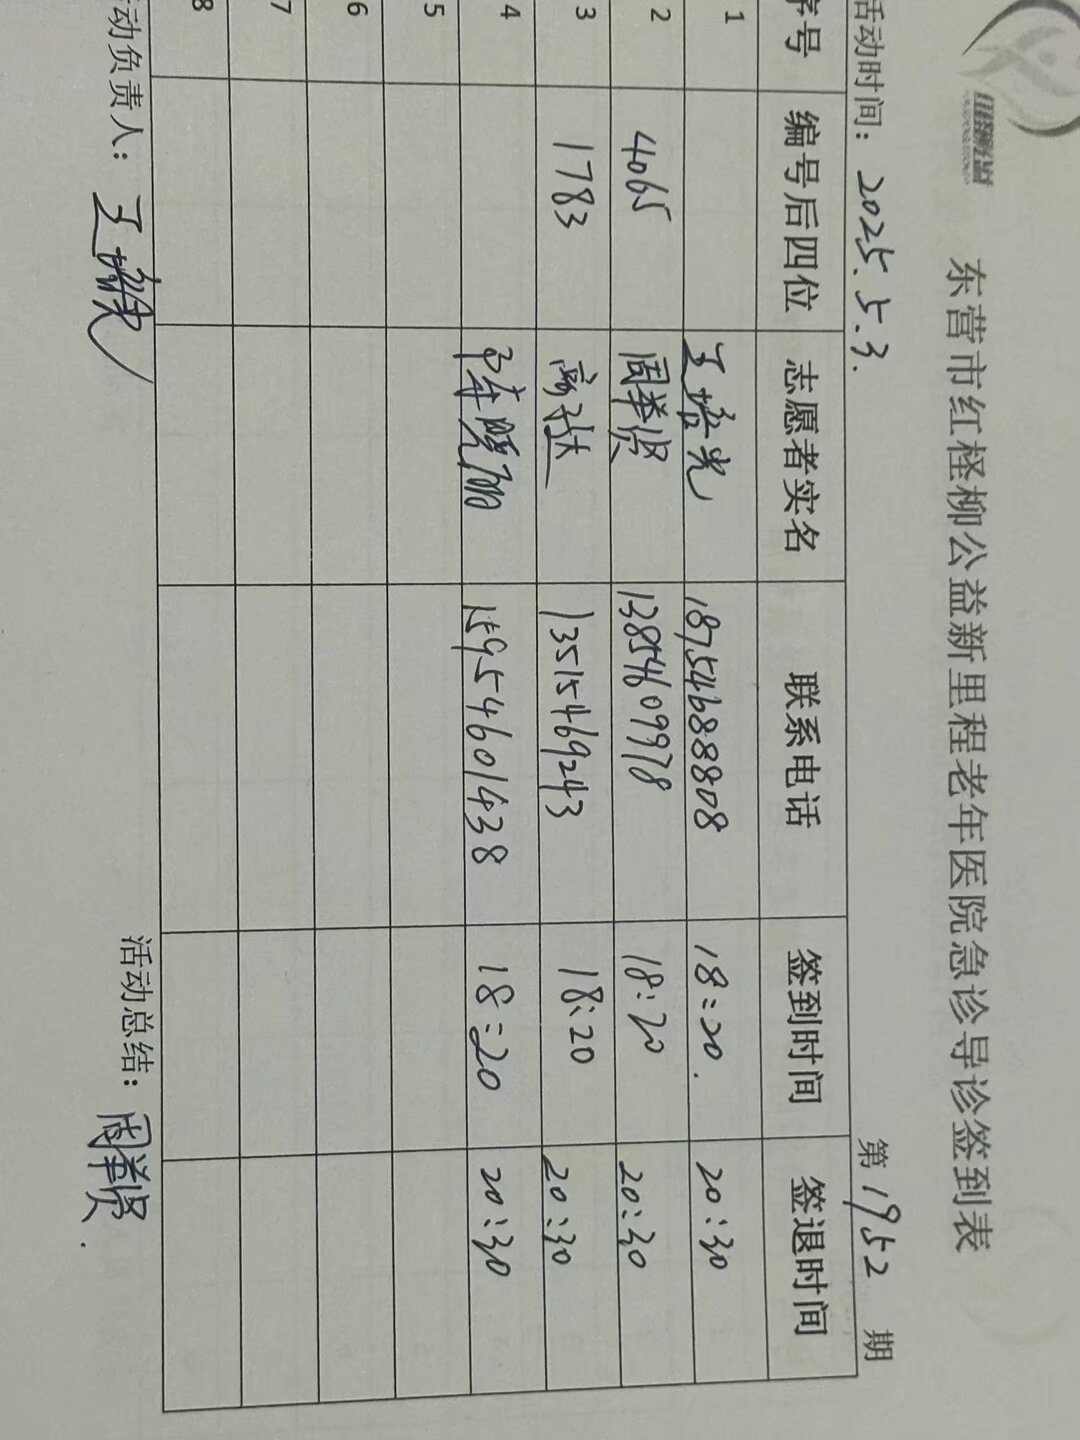 东营市红柽柳公益新里程老年医院急诊导诊签到表
活动时间：2025.5.3. 第1952期
序号 编号后四位 志愿者实名 联系电话 签到时间 签退时间
1 王培光 18754688808 18:20. 20:30
2 4065 周举贤 13854609978 18:20 20:30
3 1783 高 13515469243 18:20 20:30
4 15954601438 18:20 20:30
5
6
7
8
活动负责人：王培光 活动总结：周举贤.